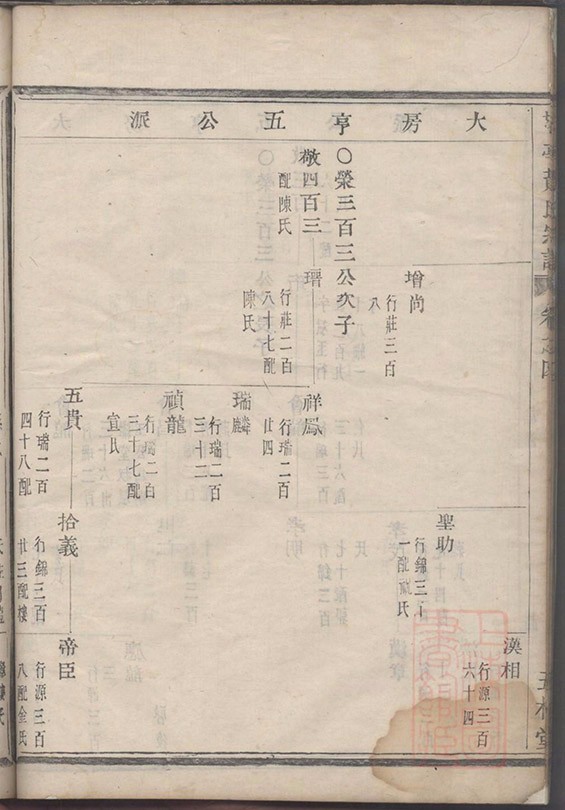 大房亨五公派
漢相
行源三百
六十四
聖助
行錦三十
一配
氏
增尚
行莊三百
八
○榮三百三公次子
敬四百三
配陳氏
瑨
行莊二百
八十七配
陳氏
祥鳳
行瑞二百
廿四
瑞麟
行瑞二百
三十二
禎龍
行瑞二百
三十七配
宣氏
五貴
行瑞二百
四十八配
拾義
行錦三百
廿三配樓
帝臣
行源三百
八配金氏